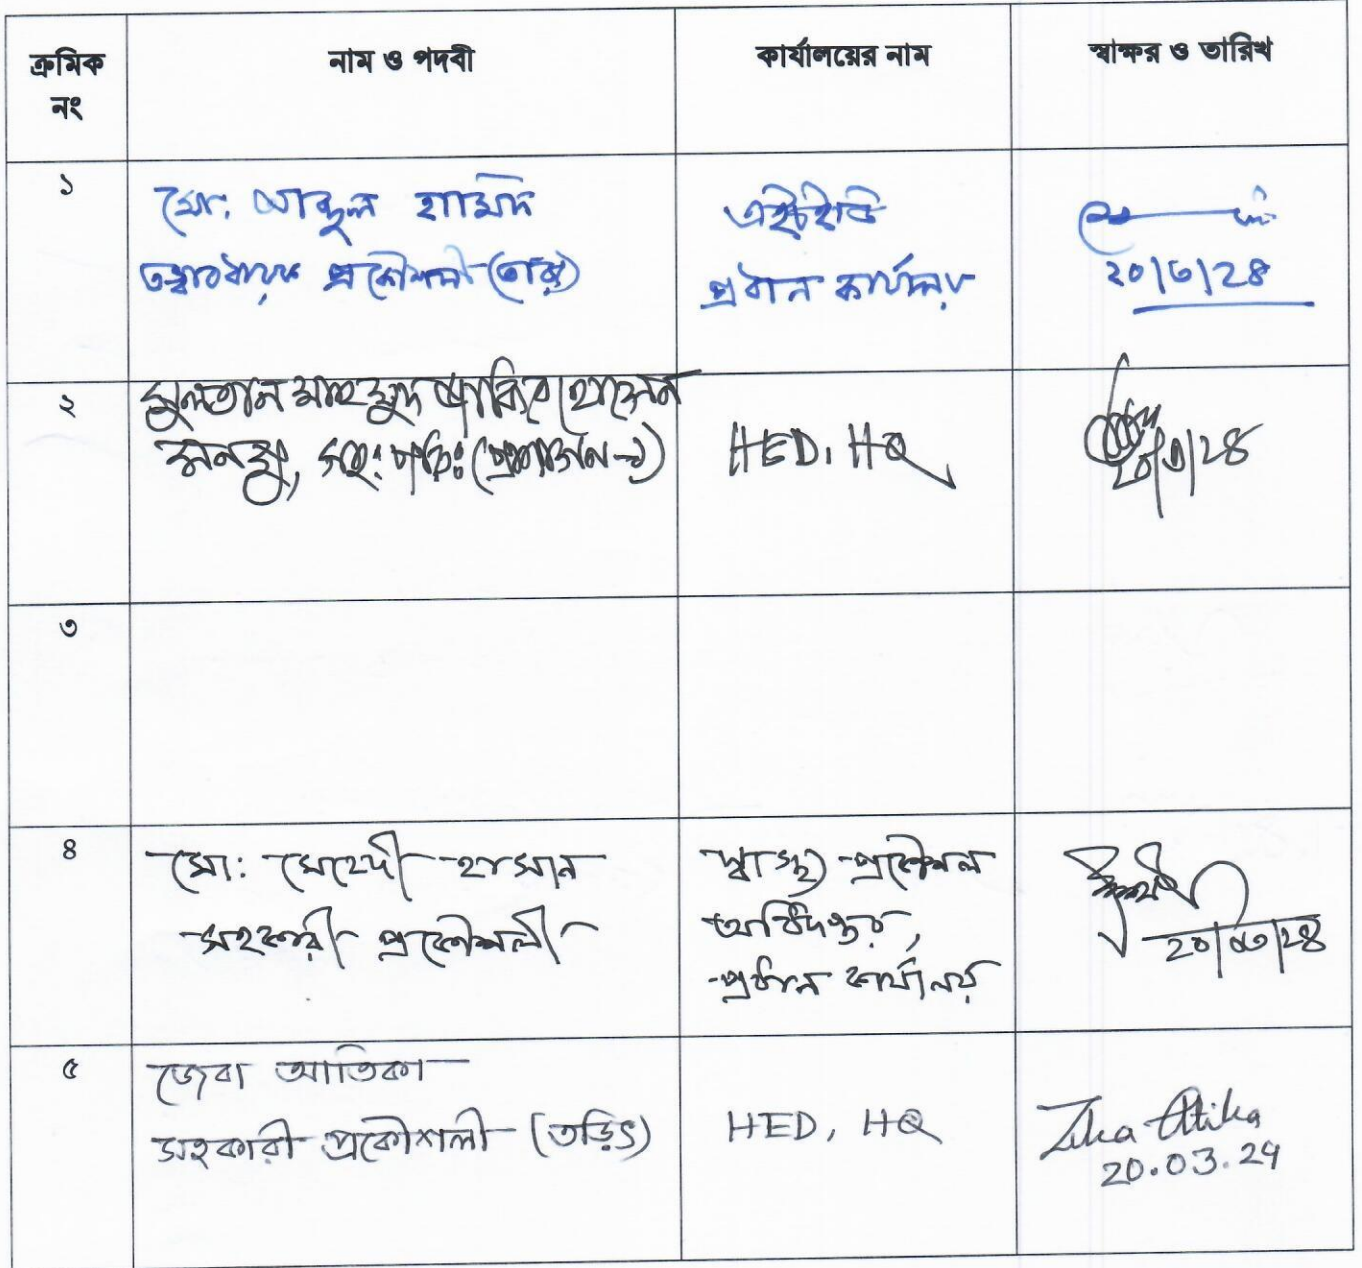 ক্রমিক নং
নাম ও পদবী
কার্যালয়ের নাম
স্বাক্ষর ও তারিখ
১
মো: আব্দুল হামিদ
তত্ত্বাবধায়ক প্রকৌশলী
এইচইডি
প্রধান কার্যালয়
২০/৩/২৪
২
সুলতান মাহমুদ হোসেন
সহ: পরি: (প্রশাসন-১)
HED, HQ
২০/৩/২৪
৩
৪
মো: মেহেদী হাসান
সহকারী প্রকৌশলী
স্বাস্থ্য প্রকৌশল
অধিদপ্তর,
প্রধান কার্যালয়
২০/০৩/২৪
৫
জেবা আতিকা
সহকারী প্রকৌশলী (তড়িৎ)
HED, HQ
Atika
20.03.24